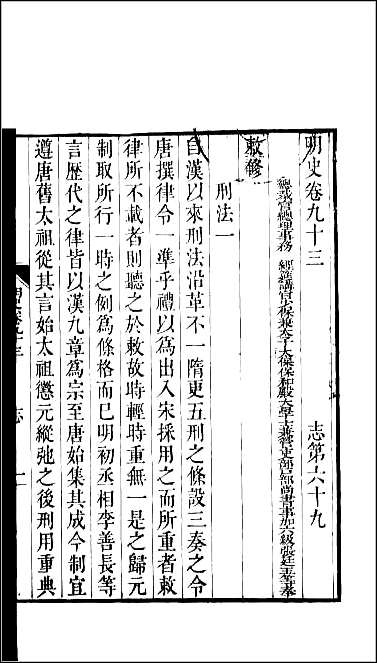 明史卷九十三 志第六十九
總裁官總理事務 經筵講官少保兼太子太保保和殿大學士兼管吏部戶部尚書事加六級張廷玉等奉
敕修
刑法一
自漢以來刑法沿革不一隋更五刑之條設三奏之令
唐撰律令一準乎禮以爲出入宋採用之而所重者敕
律所不載者則聽之於敕故時輕時重無一是之歸元
制取所行一時之例爲條格而已明初丞相李善長等
言歷代之律皆以漢九章爲宗至唐始集其成今制宜
遵唐舊太祖從其言始太祖懲元縱弛之後刑用重典
志 一